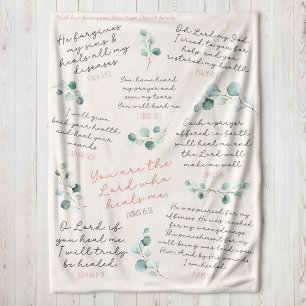 With love from your New Hope Church family
He forgives
my sins &
heals all my
diseases
PSALM 103:3
Oh Lord my God,
I cried to you for
help and you
restored my health
PSALM 30:2
You have heard
my prayer and
seen my tears
You will heal me
2 KINGS 20:5
I will give
back your health
and heal your
wounds
JEREMIAH 30:17
Such a prayer
offered in faith
will heal me and
the Lord will
make me well
JAMES 5:15
You are the
Lord who
heals me.
EXODUS 15:26
O Lord if
you heal me
I will truly
be healed
JEREMIAH 17:14
He was pierced for my
offenses He was crushed
for my wrongdoings
The punishment for my
well being was laid upon
Him And by His wounds
I am healed.